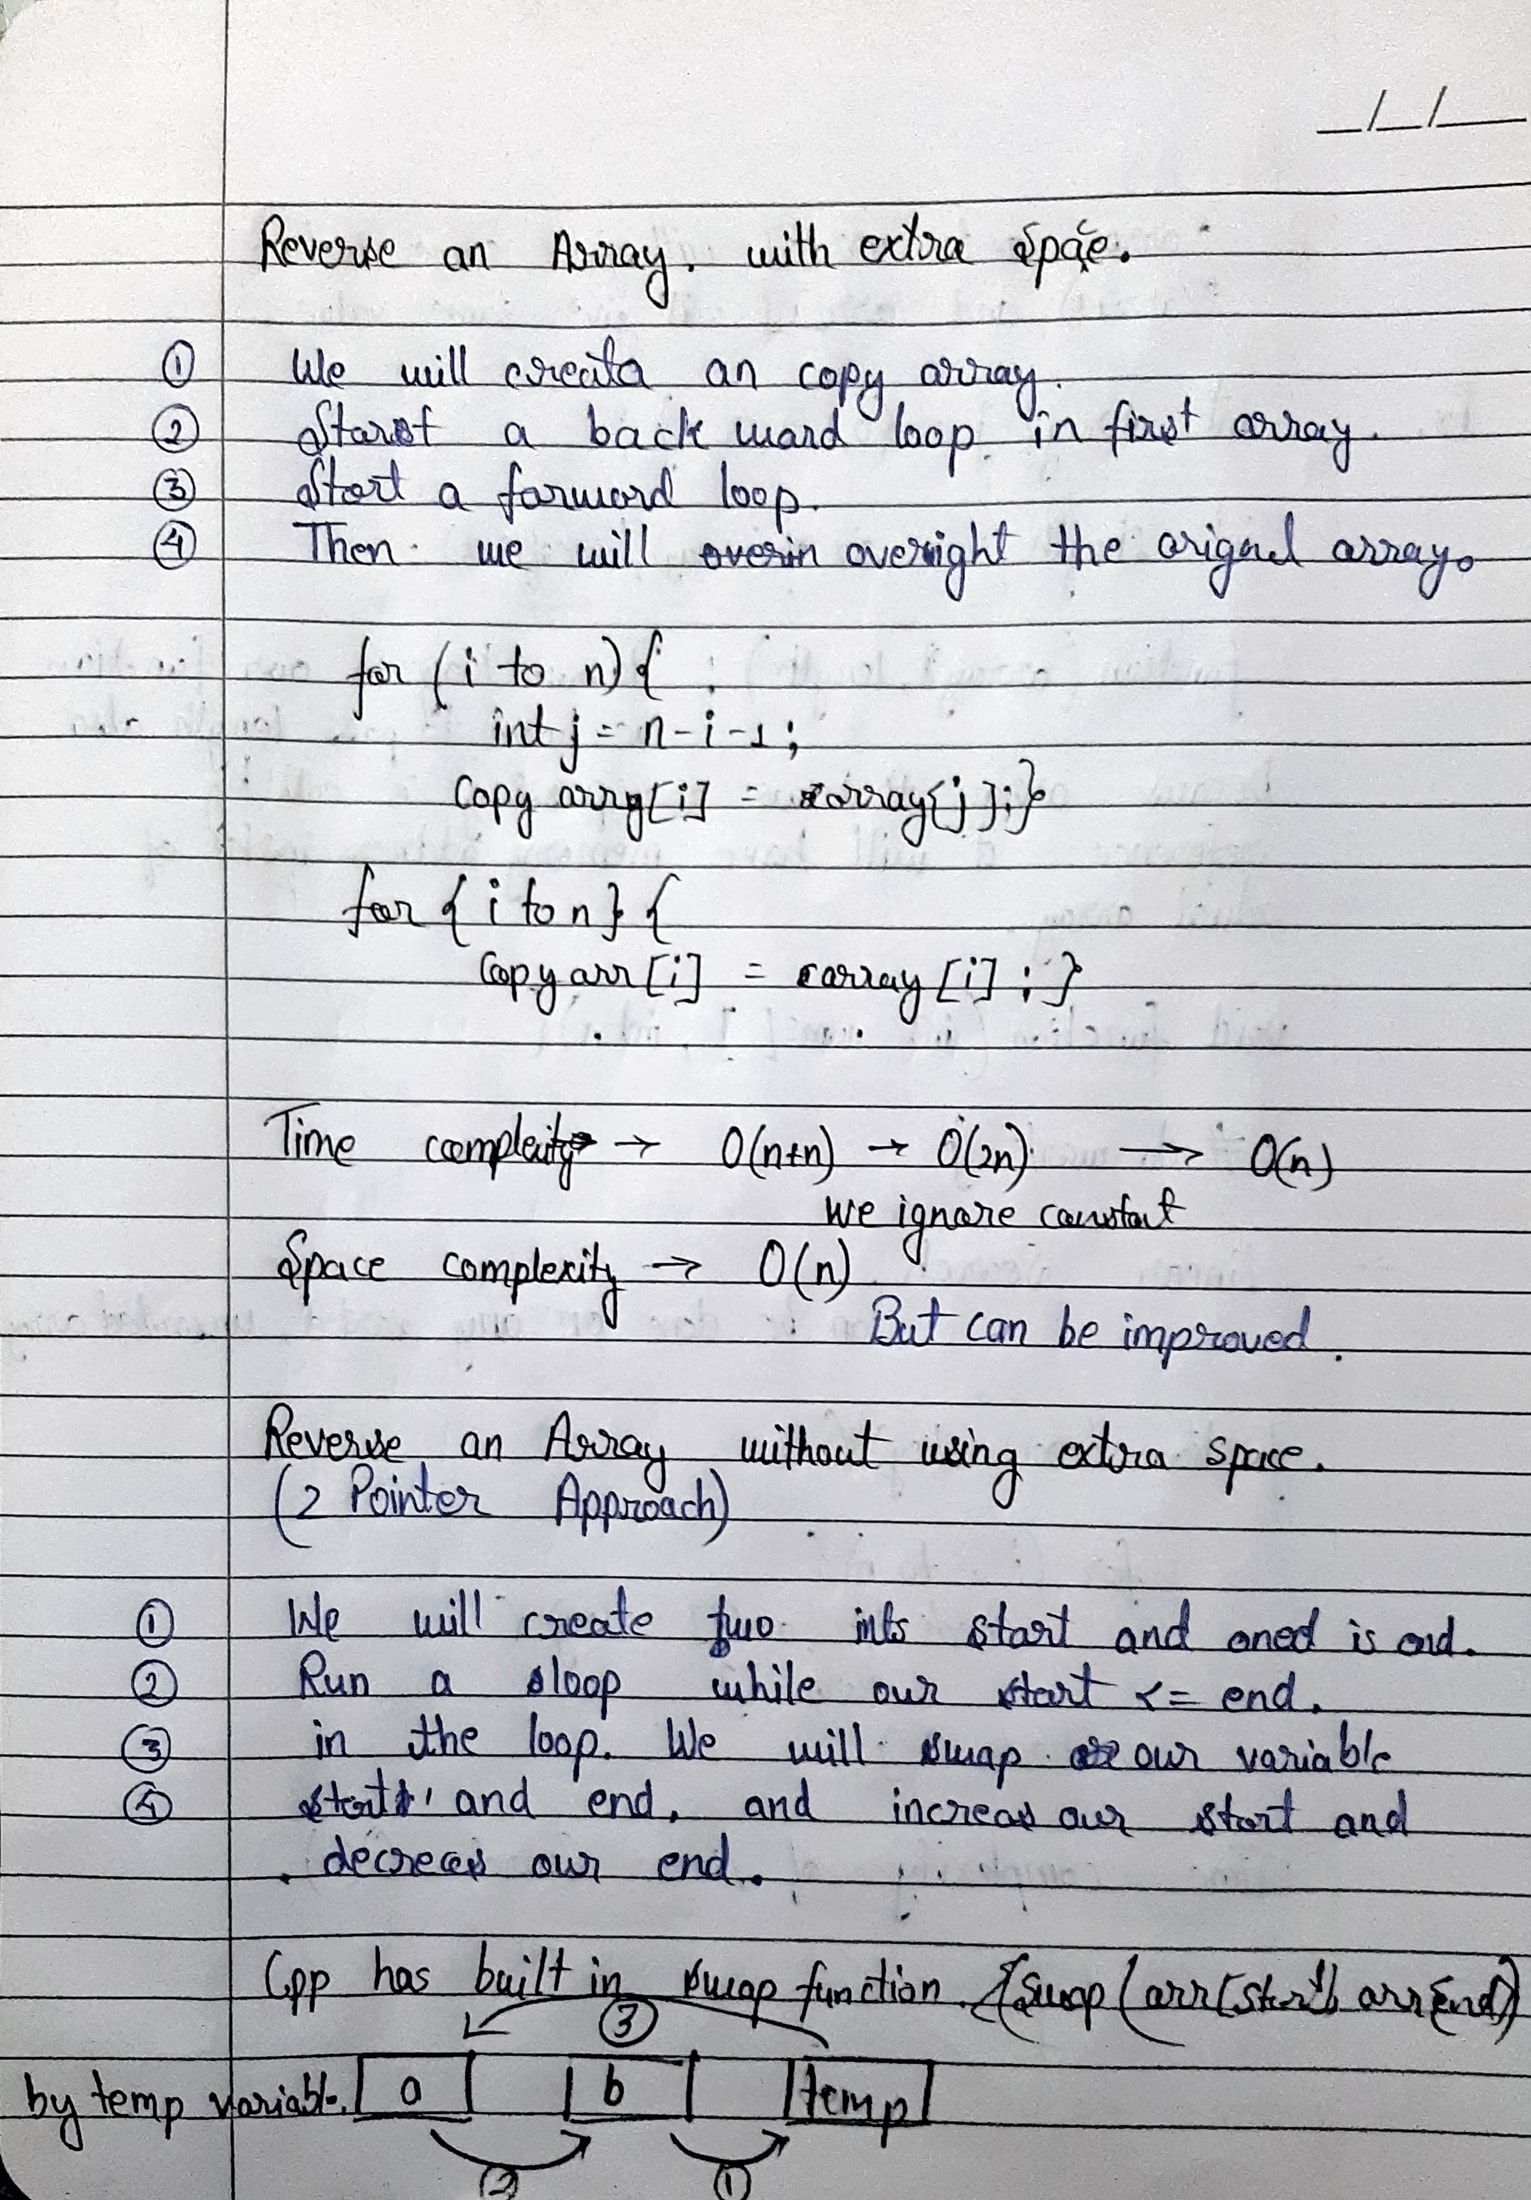 Reverse an Array. with extra space.
① We will creata an copy array.
② Start a back ward loop in first array.
③ Start a farword loop.
④ Then we will overin overwight the orignal array.
for (i to n) {
int j = n-i-1;
Copy arry[i] = array[j];}
for { i to n } {
Copy arr [i] = array [i] ; }
Time compleity → O(n+n) → O(2n) → O(n)
we ignore constant
Space complexity → O(n)
But can be improved.
Reverse an Array without using extra space.
(2 Pointer Approach)
① We will create two ints start and oned is end.
② Run a loop while our start <= end.
③ in the loop. We will swap our variable
④ start and end, and increas our start and
decreas our end.
Cpp has built in swap function. {Swap (arr[start], arr[end])
③
by temp variable. a b temp
② ①